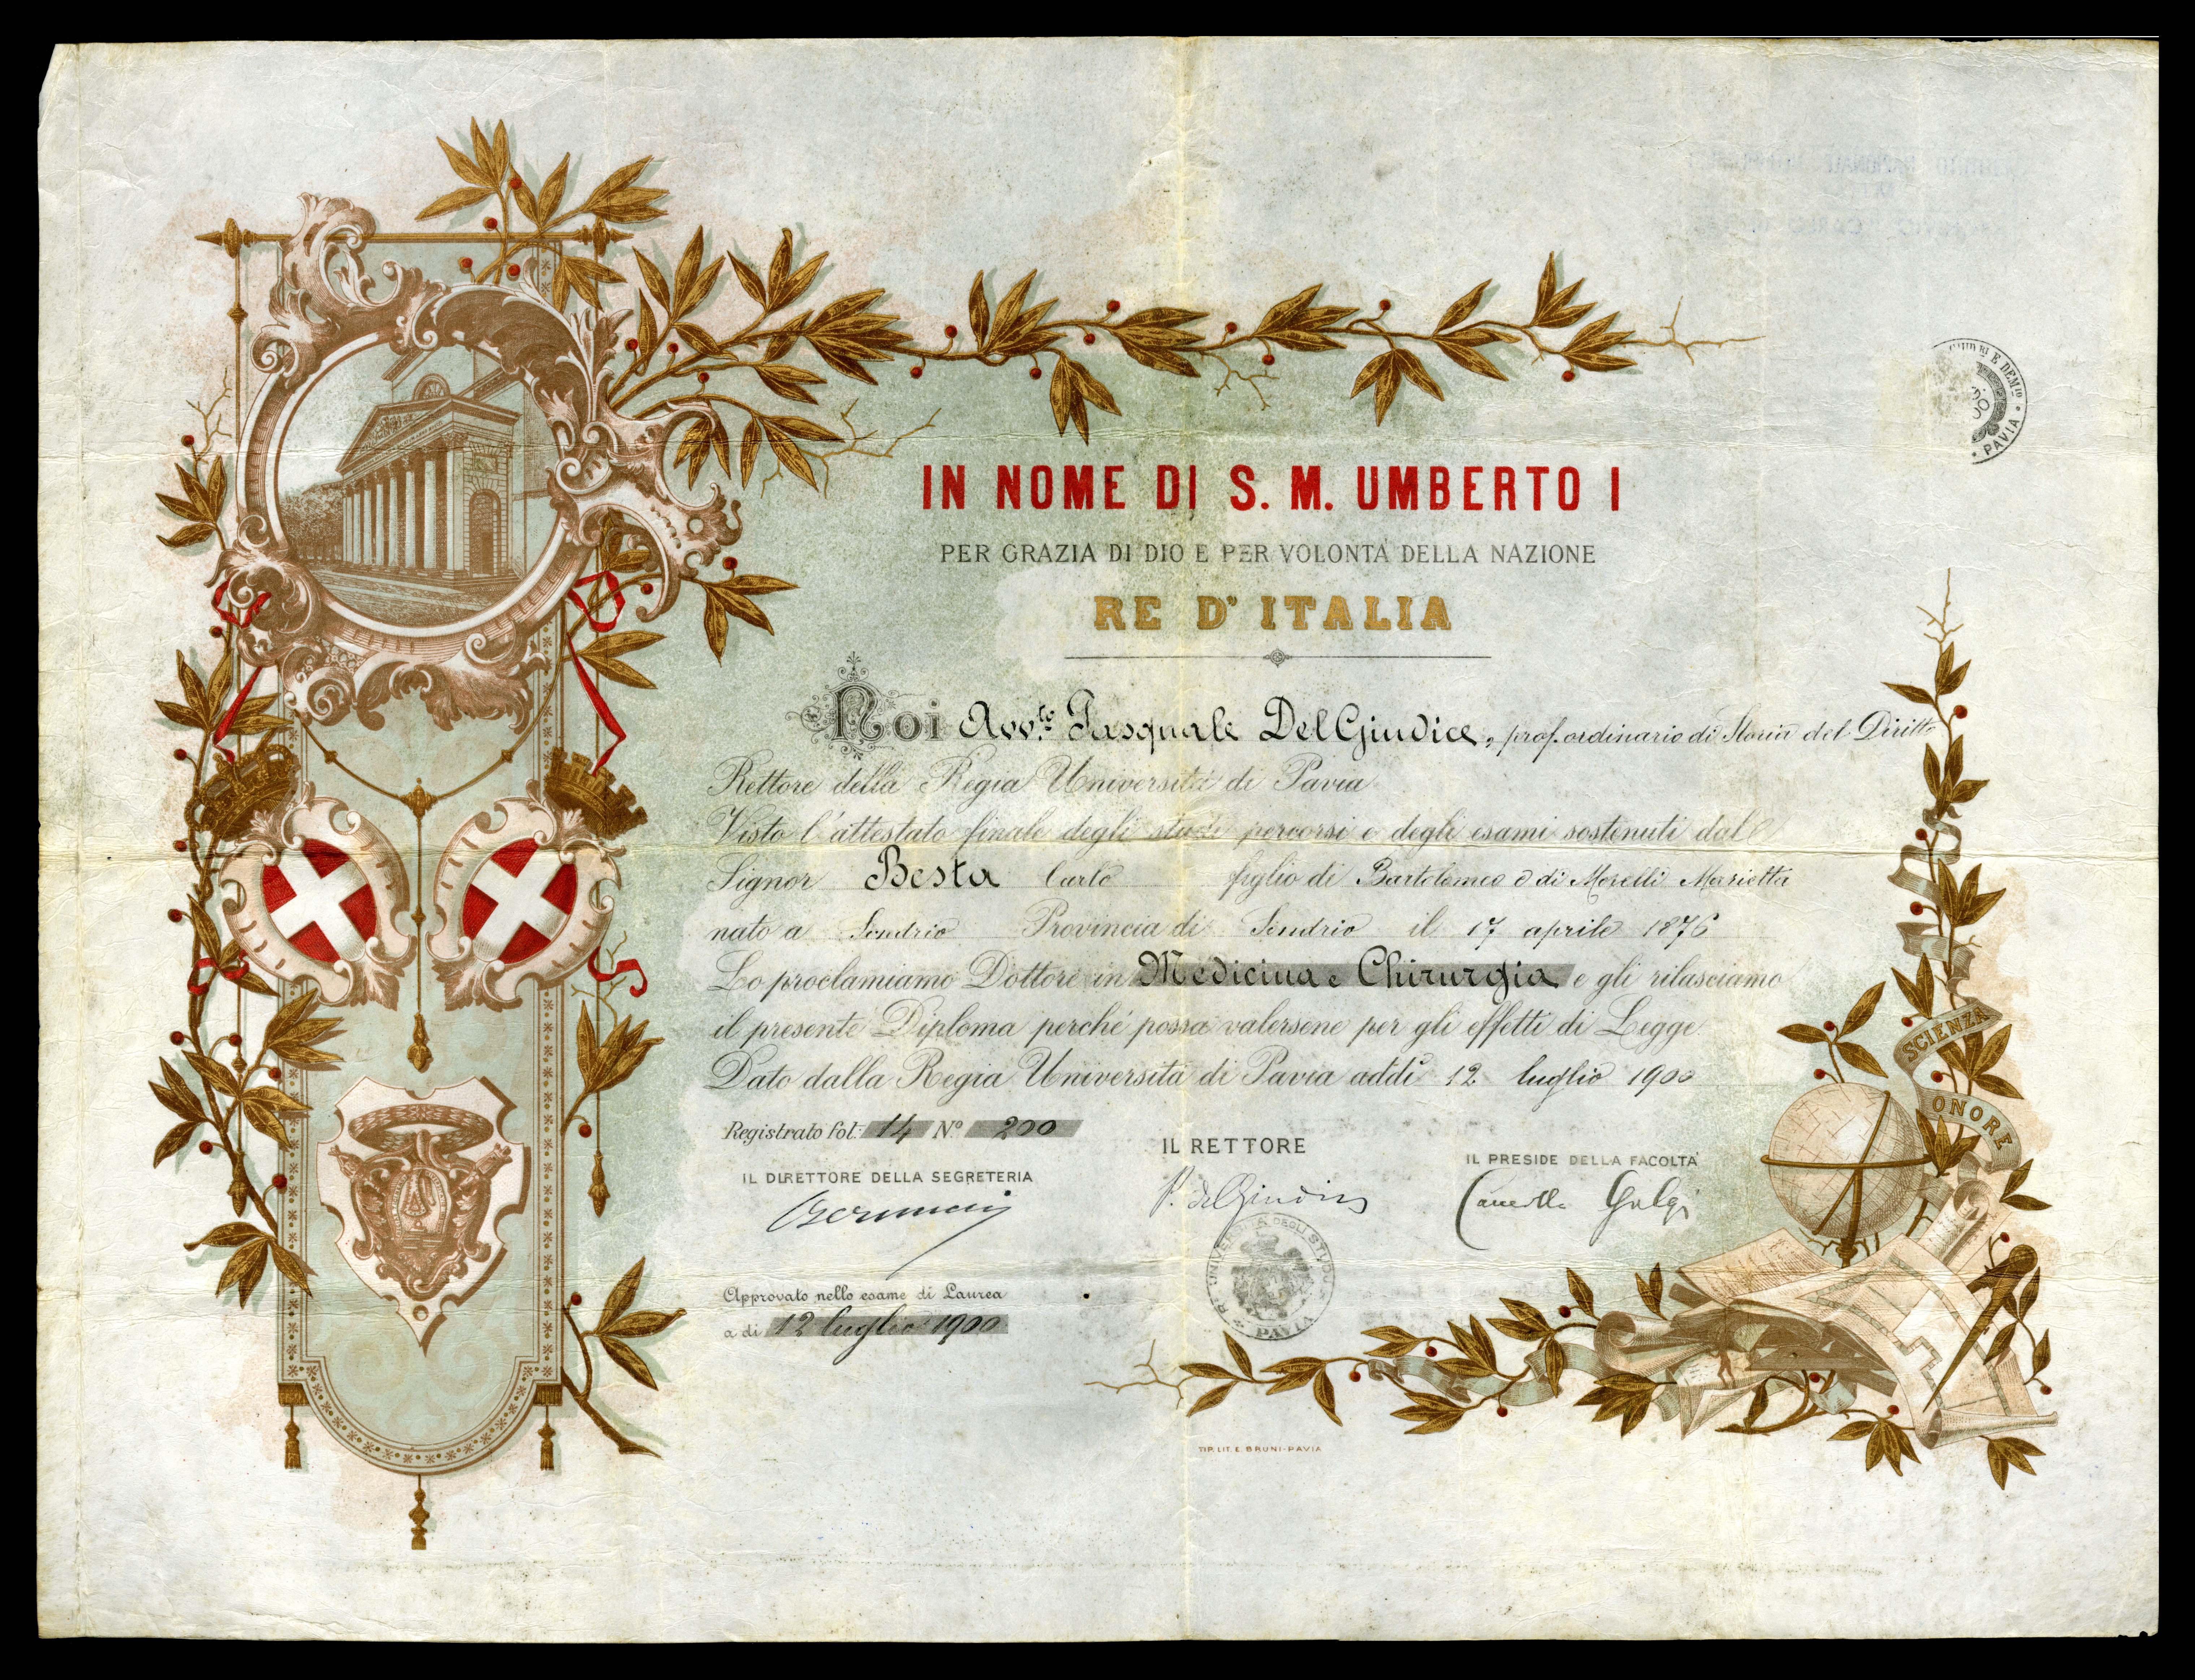 IN NOME DI S. M. UMBERTO I
PER GRAZIA DI DIO E PER VOLONTÀ DELLA NAZIONE
RE D'ITALIA
Noi Avv.to Pasquale Del Giudice, prof. ordinario di Storia del Diritto
Rettore della Regia Università di Pavia
Visto l'attestato finale degli studi percorsi e degli esami sostenuti dal
Signor Besta Carlo figlio di Bartolomeo e di Morelli Marietta
nato a Sondrio Provincia di Sondrio il 17 aprile 1876
Lo proclamiamo Dottore in Medicina e Chirurgia e gli rilasciamo
il presente Diploma perché possa valersene per gli effetti di Legge.
Dato dalla Regia Università di Pavia addì 12 luglio 1900
Registrato fol. 14 Nº 200
IL DIRETTORE DELLA SEGRETERIA
IL RETTORE
P. Del Giudice
IL PRESIDE DELLA FACOLTÀ
Camillo Golgi
Approvato nello esame di Laurea
a di 12 luglio 1900
R. UNIVERSITÀ DEGLI STUDI
PAVIA
SCIENZA
ONORE
E DEM.º
PAVIA
TIP. LIT. E. BRUNI-PAVIA